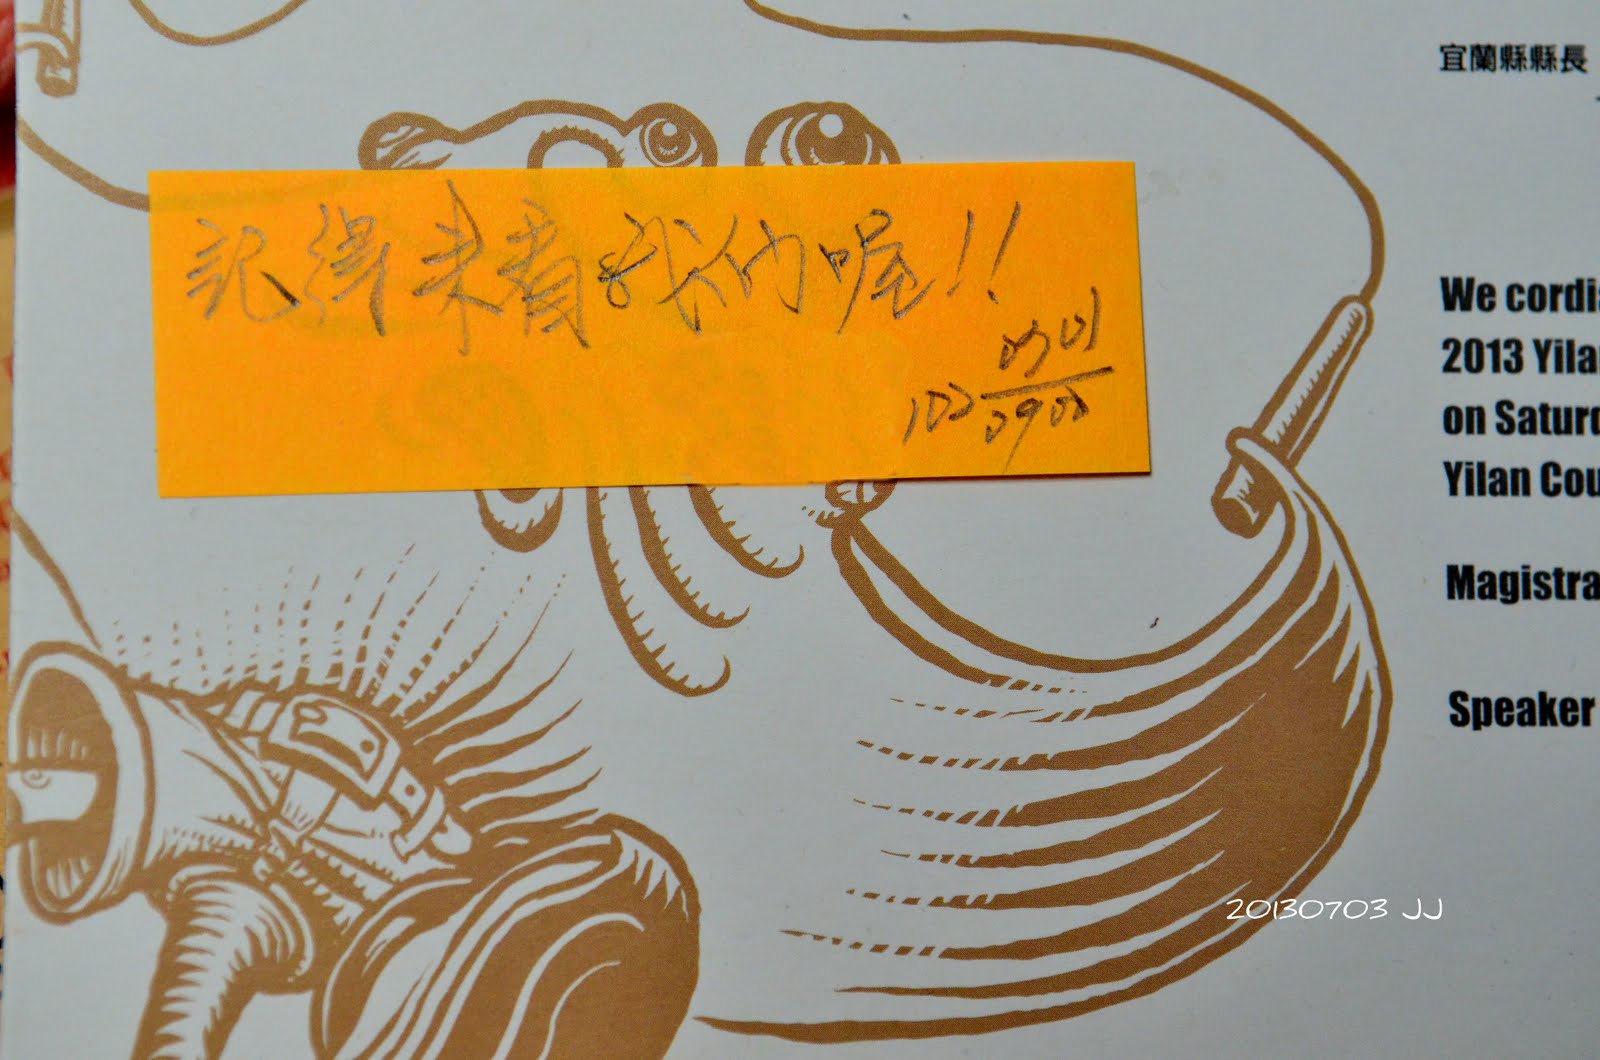 記得來看我們喔!!
0701
102
0908
宜蘭縣縣長
We cordi
2013 Yila
on Saturd
Yilan Cou
Magistra
Speaker
20130703 JJ